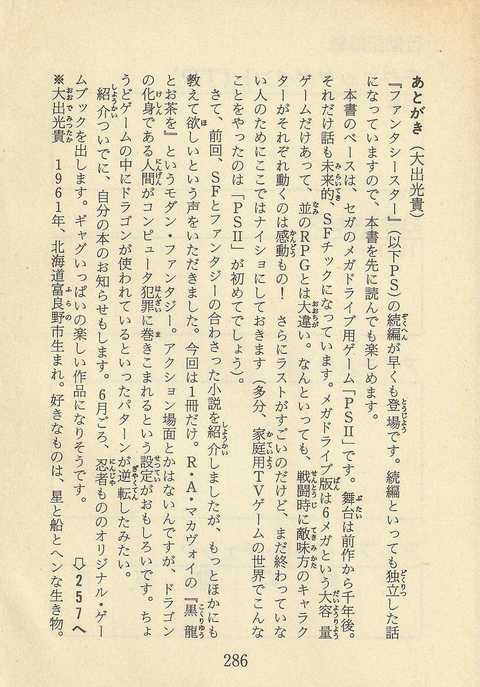 あとがき（大出光貴）
『ファンタシースター』（以下ＰＳ）の続編が早くも登場です。続編といっても独立した話
になっていますので、本書を先に読んでも楽しめます。
本書のベースは、セガのメガドライブ用ゲーム「ＰＳⅡ」です。舞台は前作から千年後。
それだけ話も未来的、ＳＦチックになっています。メガドライブ版は６メガという大容量
ゲームだけあって、並のＲＰＧとは大違い。なんといっても、戦闘時に敵味方のキャラク
ターがそれぞれ動くのは感動もの！　さらにラストがすごいのだけど、まだ終わっていな
い人のためにここではナイショにしておきます（多分、家庭用ＴＶゲームの世界でこんな
ことをやったのは「ＰＳⅡ」が初めてでしょう）。
さて、前回、ＳＦとファンタジーの合わさった小説を紹介しましたが、もっとほかにも
教えて欲しいという声をいただきました。今回は１冊だけ。Ｒ・Ａ・マカヴォイの『黒龍
とお茶を』というモダン・ファンタジー。アクション場面とかはないんですが、ドラゴン
の化身である人間がコンピュータ犯罪に巻きこまれるという設定がおもしろいです。ちょ
うどゲームの中にドラゴンが使われているといったパターンが逆転したみたい。
紹介ついでに、自分の本のお知らせもします。６月ごろ、忍者もののオリジナル・ゲー
ムブックを出します。ギャグいっぱいの楽しい作品になりそうです。　⇩２５７へ
※大出光貴　１９６１年、北海道富良野市生まれ。好きなものは、星と船とヘンな生き物。
286